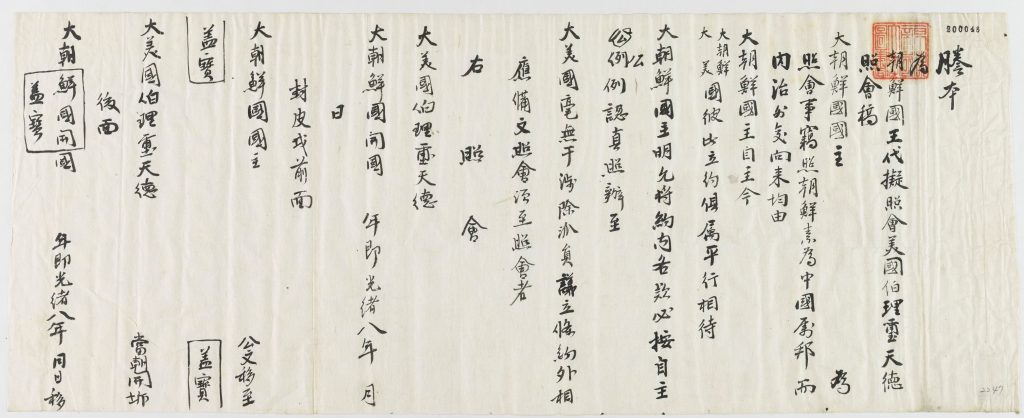 200046
謄本
為
朝鮮國王代擬照會美國伯理璽天德
照會稿
大朝鮮國國主 為
照會事竊照朝鮮素為中國屬邦而
內治外交向来均由
大朝鮮國主自主今
大朝鮮
大美國彼此立約俱属平行相待
大朝鮮國主明允将約内各款必按自主
公
例例認真照辦至
大美國毫無干涉除派員議立條約外相
應備文照會須至照會者
右照會
大美國伯理璽天德
大朝鮮國開國 年即光緒八年 月
日
封皮式前面
大朝鮮國國主 公文移至
盖寶 盖寶
大美國伯理璽天德 當朝開坼
後面
大朝鮮國開國 年即光緒八年 月日移
盖寶
2247